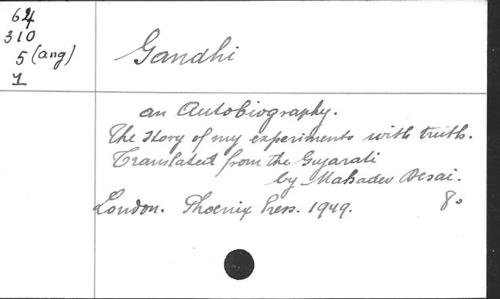 64
310
5 (ang)
1
Gandhi
an Autobiography.
The story of my experiments with truth.
Translated from the Gujarati
by Mahadev Desai.
London. Phoenix Press. 1949. 8o